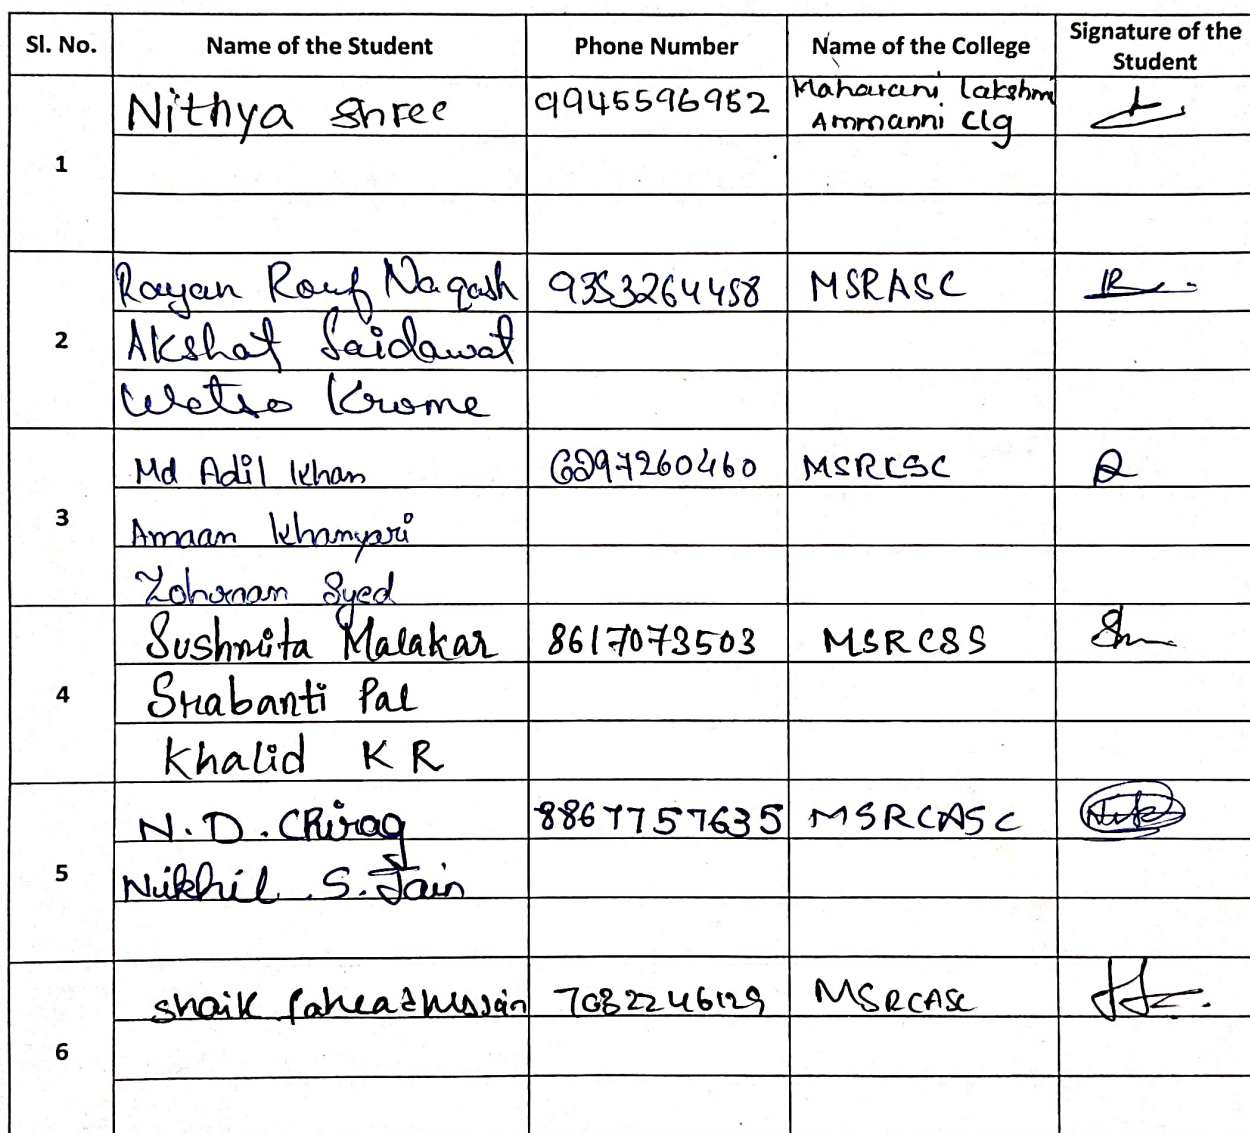 Sl. No. Name of the Student Phone Number Name of the College Signature of the Student
1 Nithya Shree 9945596952 Maharani Lakshmi Ammanni Clg
2 Rayan Rouf Naqash 9353264458 MSRASC
Akshat Saidawat
Wetso Krome
3 Md Adil Khan 6297260460 MSRCSC
Amaan Khanyari
Syed
4 Sushmita Malakar 8617073503 MSRCSS
Srabanti Pal
Khalid K R
5 N.D. Chirag 8867757635 MSRCASC
Nikhil S. Jain
6 Shaik 7082246129 MSRCASC